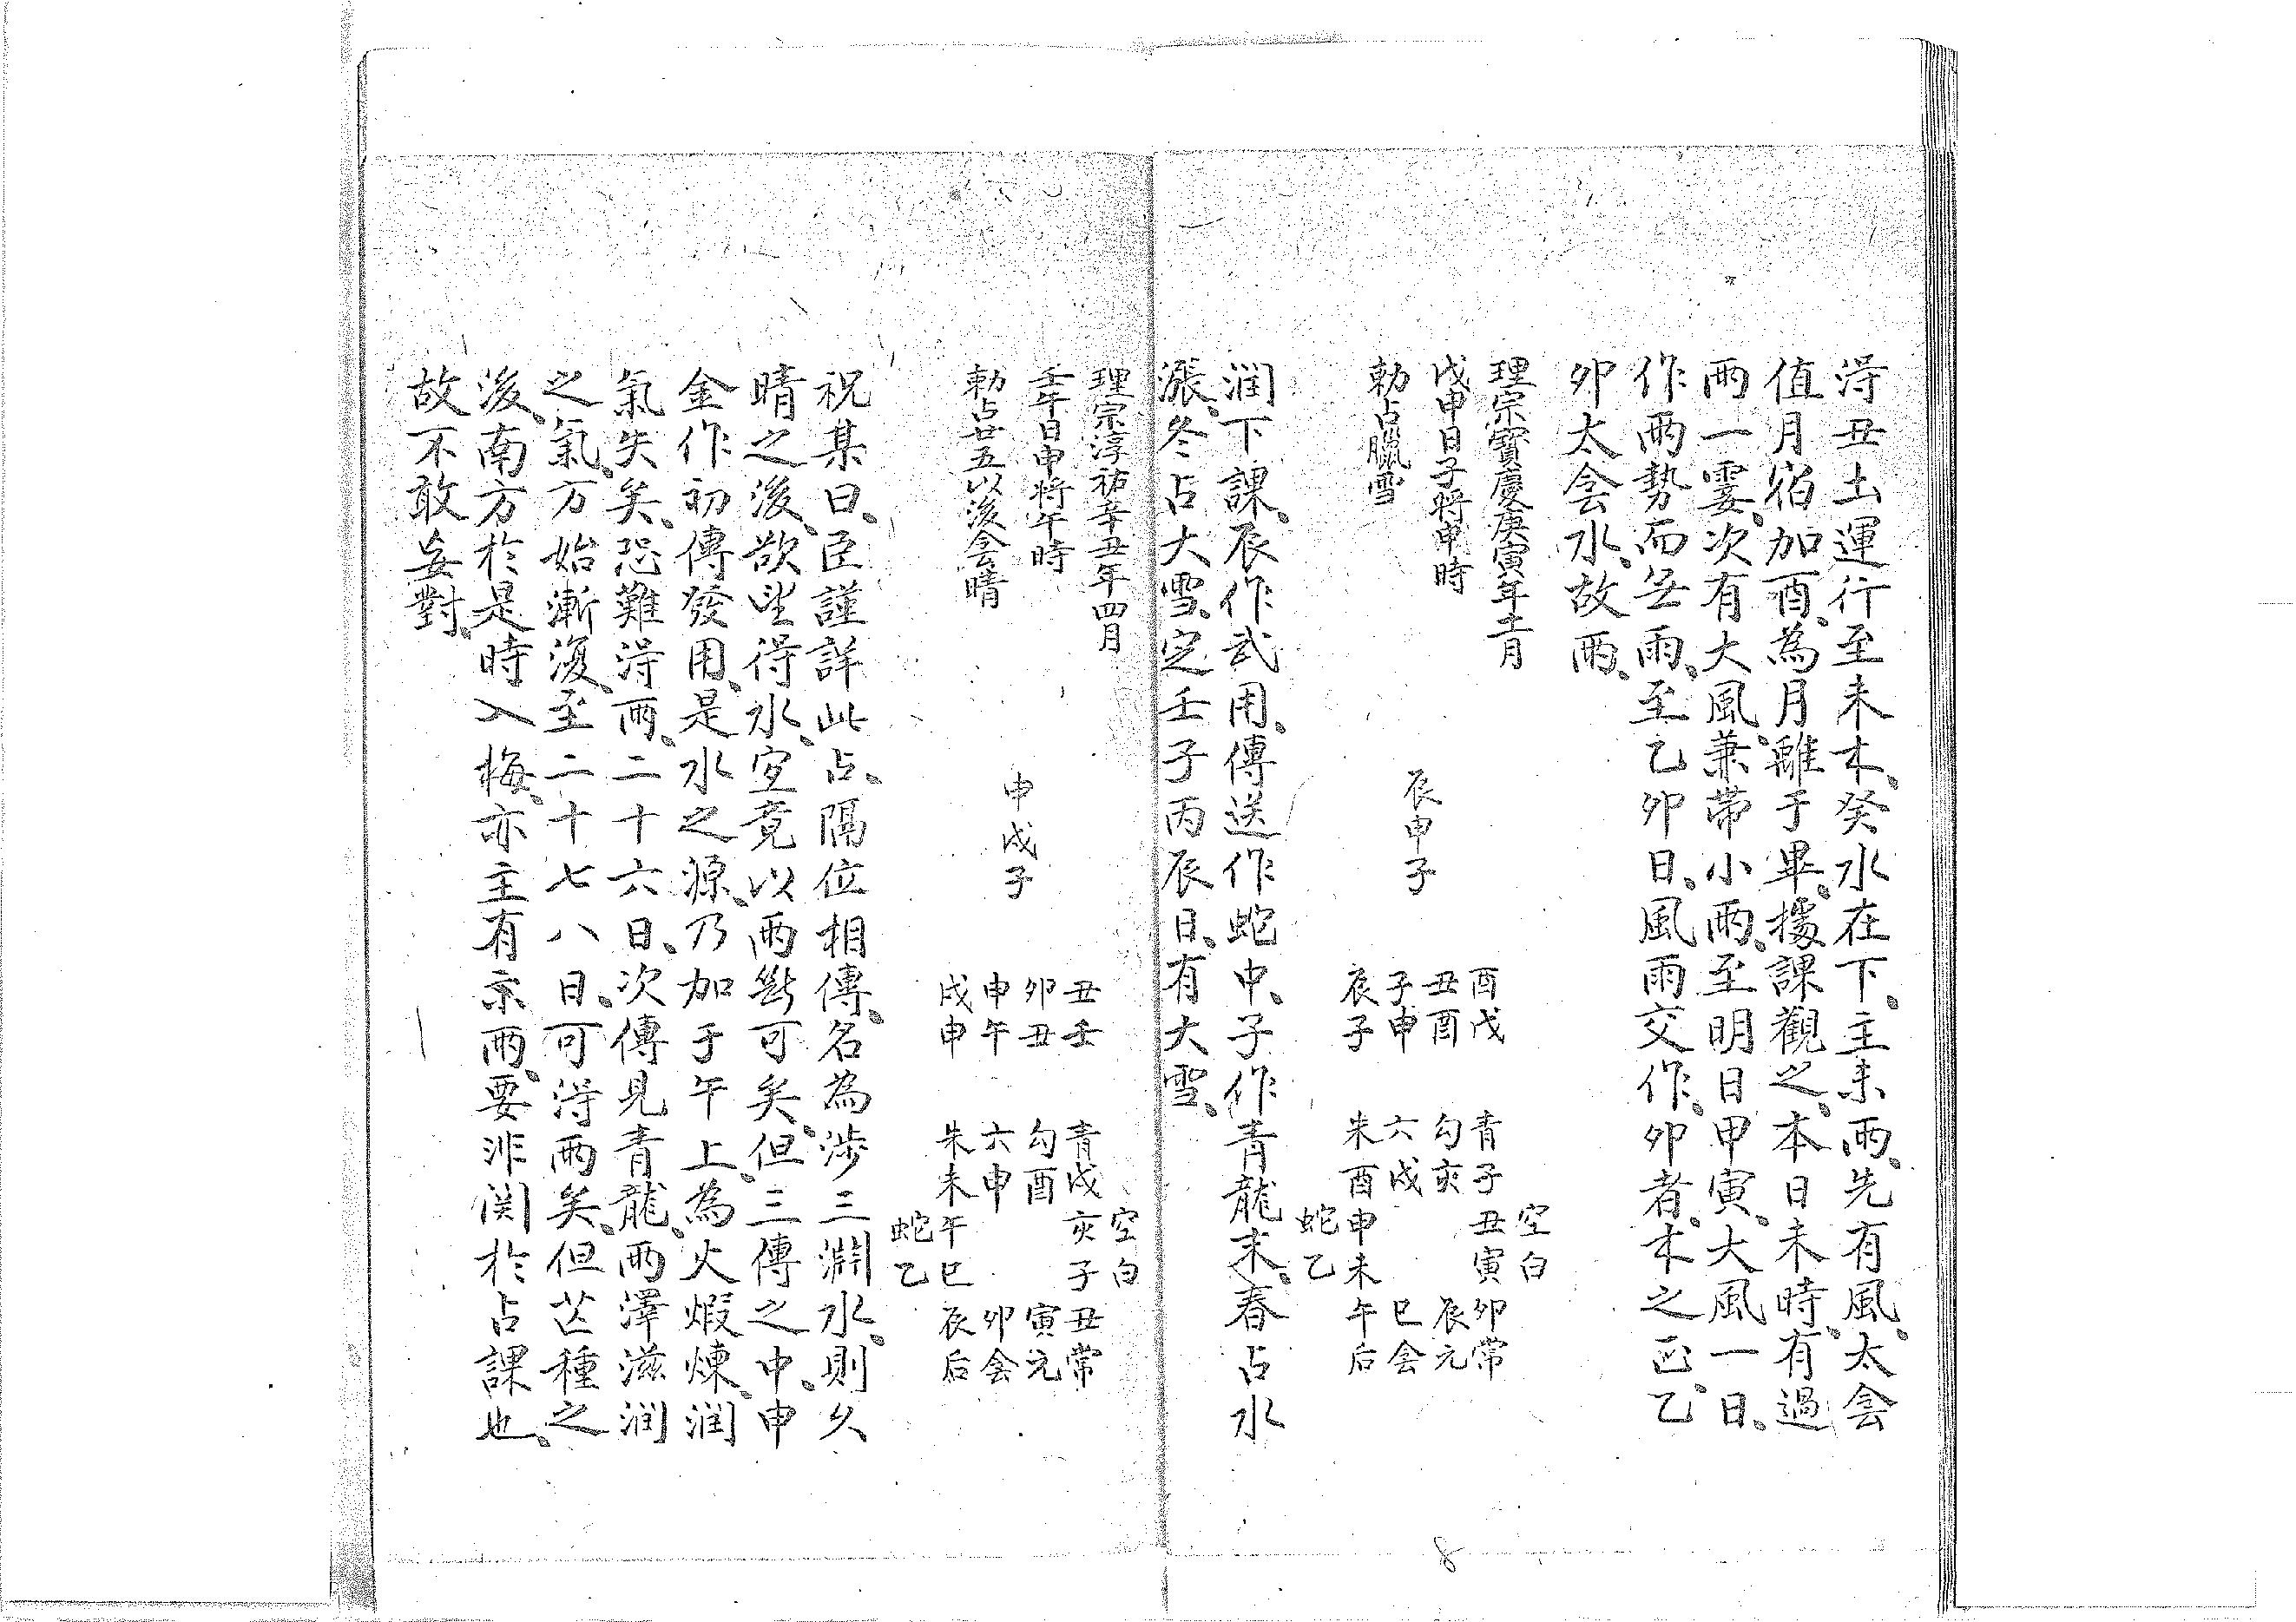 淂丑土運行至未木、癸水在下、主未雨、先有風、太侌
值月宿加酉、為月離于畢、據課觀之、本日未時、有過
雨一霎、次有大風、兼带小雨、至明日甲寅、大風一日、
作雨势而无雨、至乙卯日、風雨交作、卯者、木之正、乙
卯太侌水、故雨、
理宗寳慶庚寅年十一月
戊申日子将申時
勅占臘雪
辰申子
酉戊
丑酉
子申
辰子
空白
青子丑寅卯常
勾亥 辰元
六戌 巳侌
朱酉申未午后
蛇乙
润下課、辰作武用、傳送作蛇中、子作青龍末、春占水
漲、冬占大雪、定壬子丙辰日、有大雪、
理宗淳祐辛丑年四月
壬午日申将午時
勅占廿五以後侌晴
申戌子
丑壬
卯丑
申午
戌申
空白
青戌亥子丑常
勾酉 寅元
六申 卯侌
朱未午巳辰后
蛇乙
祝某曰、臣謹詳此占、隔位相傳、名為涉三淵水、則久
晴之後、欲望得水、定竟以雨斷可矣、但三傳之中、申
金作初傳發用、是水之源、乃加于午上、為火煅煉、润
氣失矣、恐難淂雨、二十六日、次傳見青龍、雨澤滋润
之氣、方始漸復、至二十七八日、可淂雨矣、但芒種之
後、南方於是時入梅、亦主有示雨、要非関於占課也、
故不敢妄對、
8